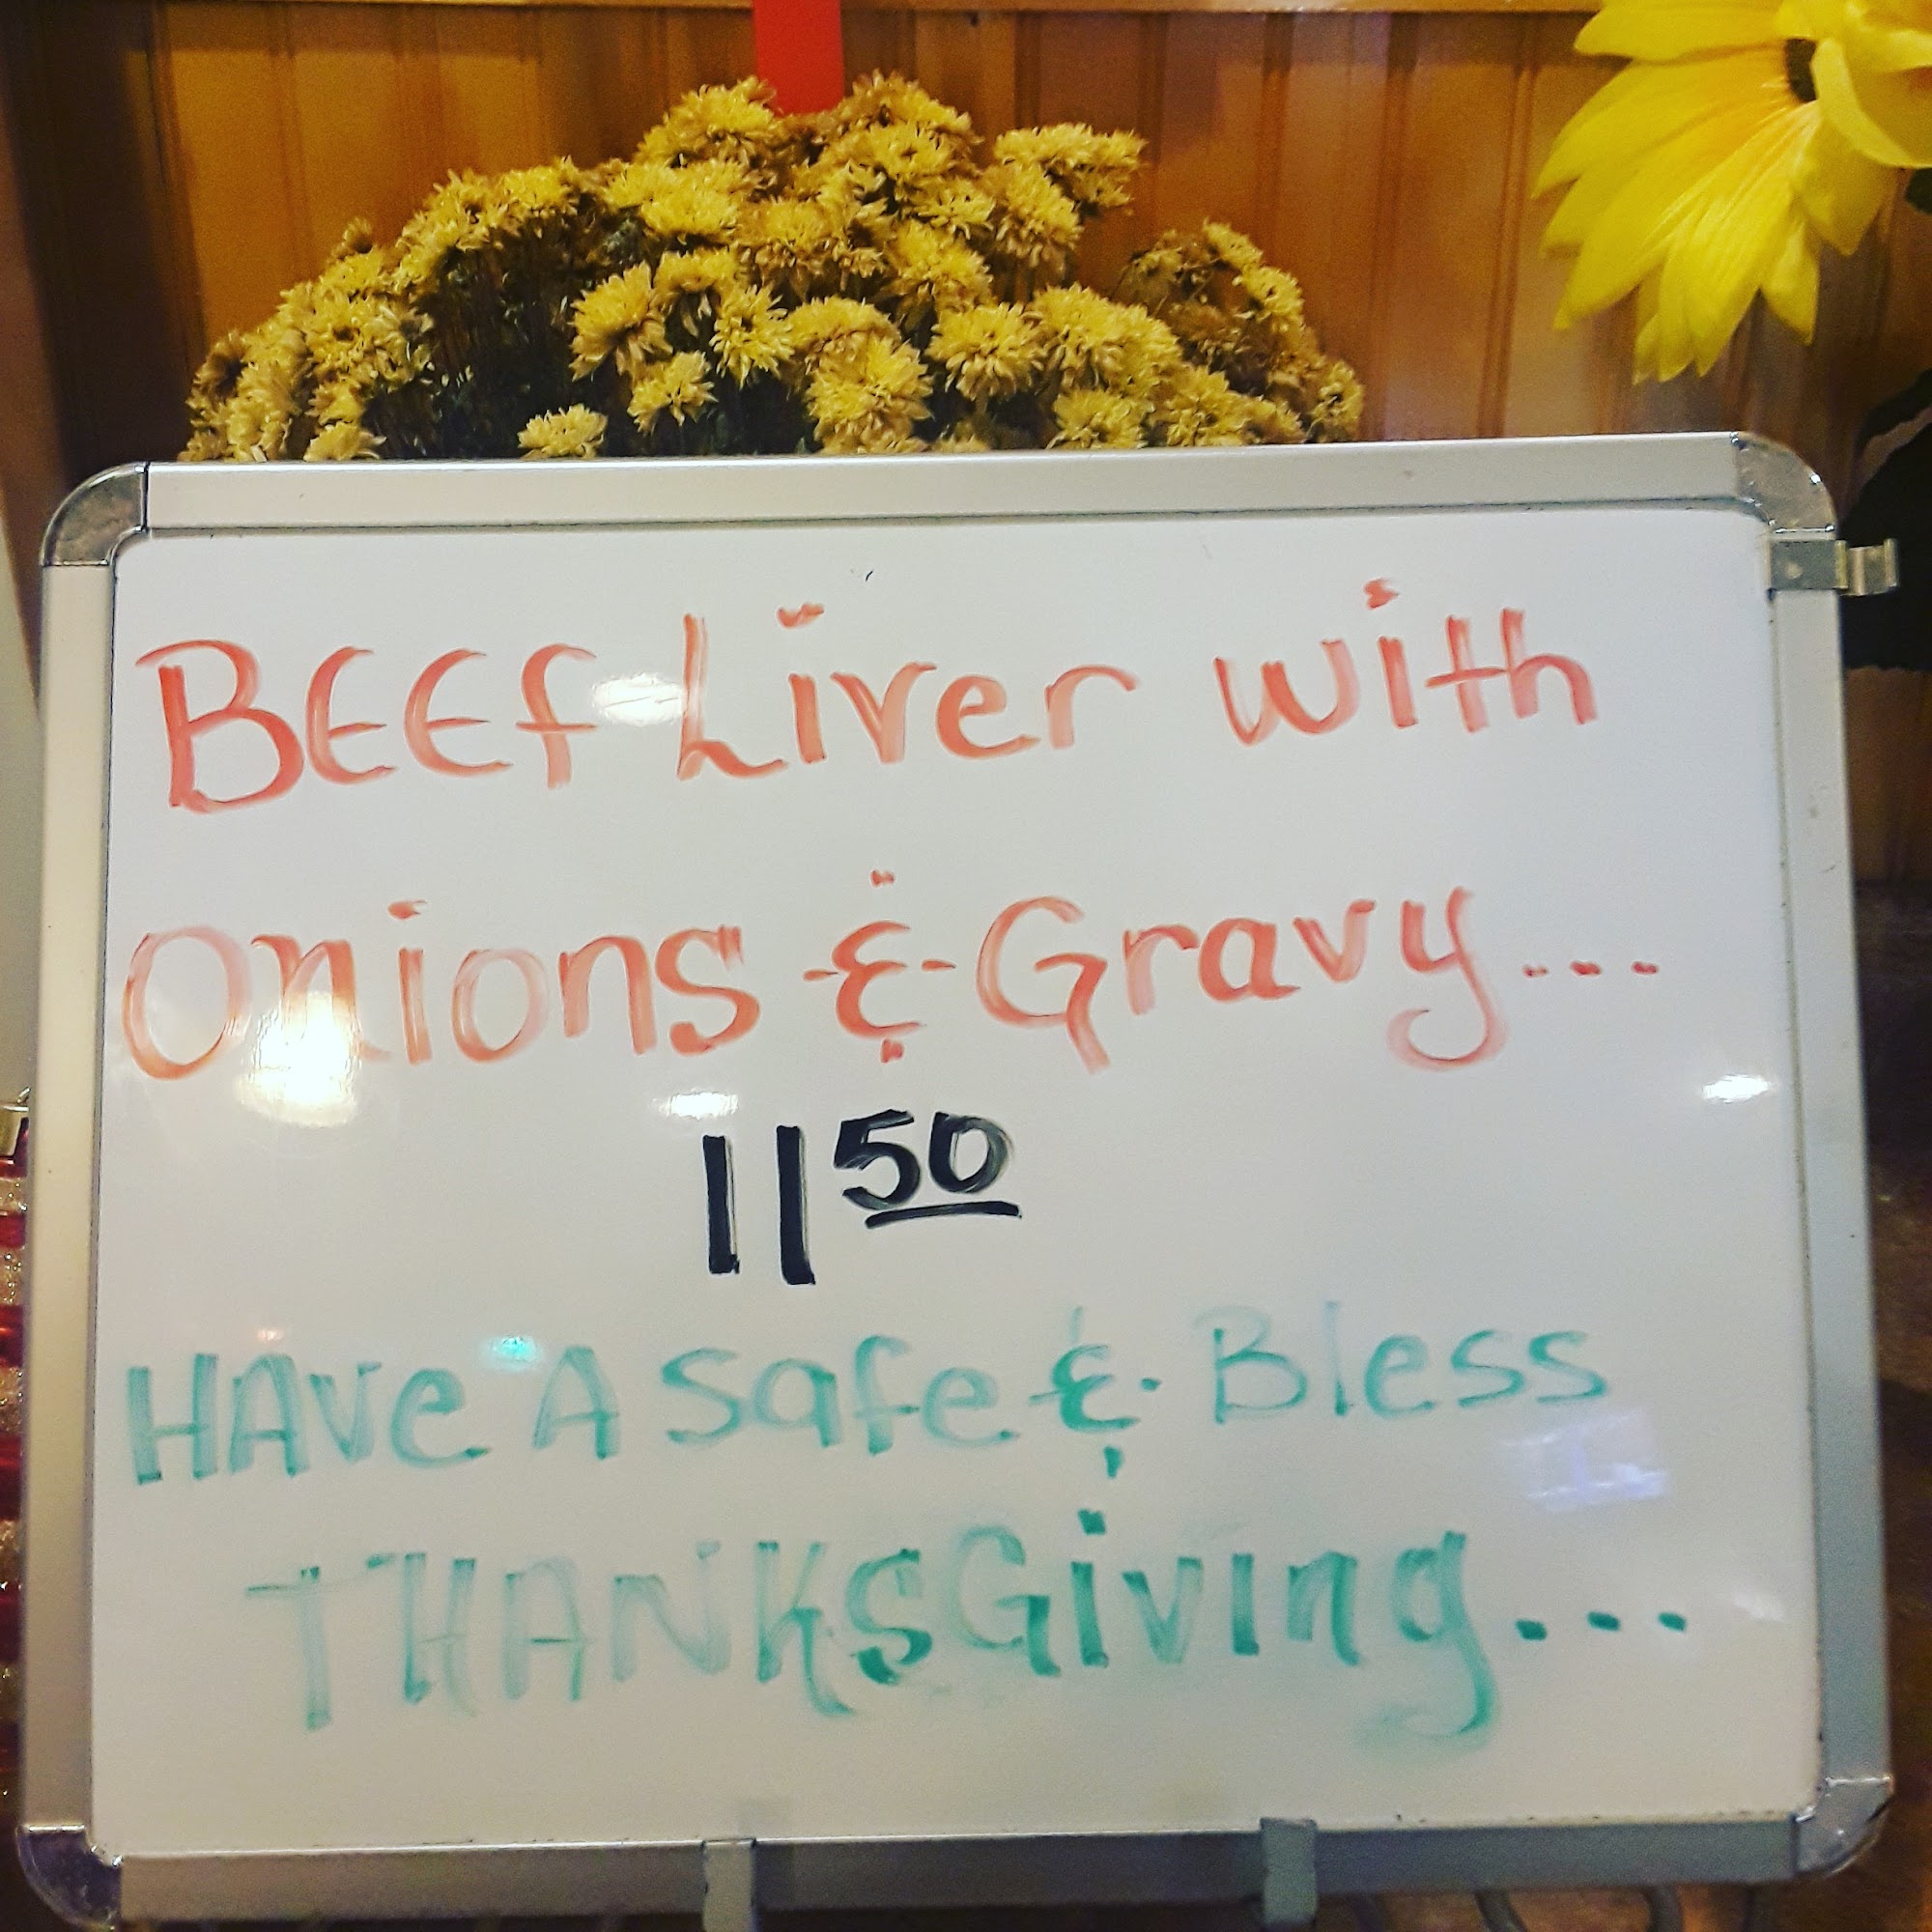 BEEf Liver with
Onions & Gravy...
11 50
HAVe A Safe & Bless
THANKSGiving...